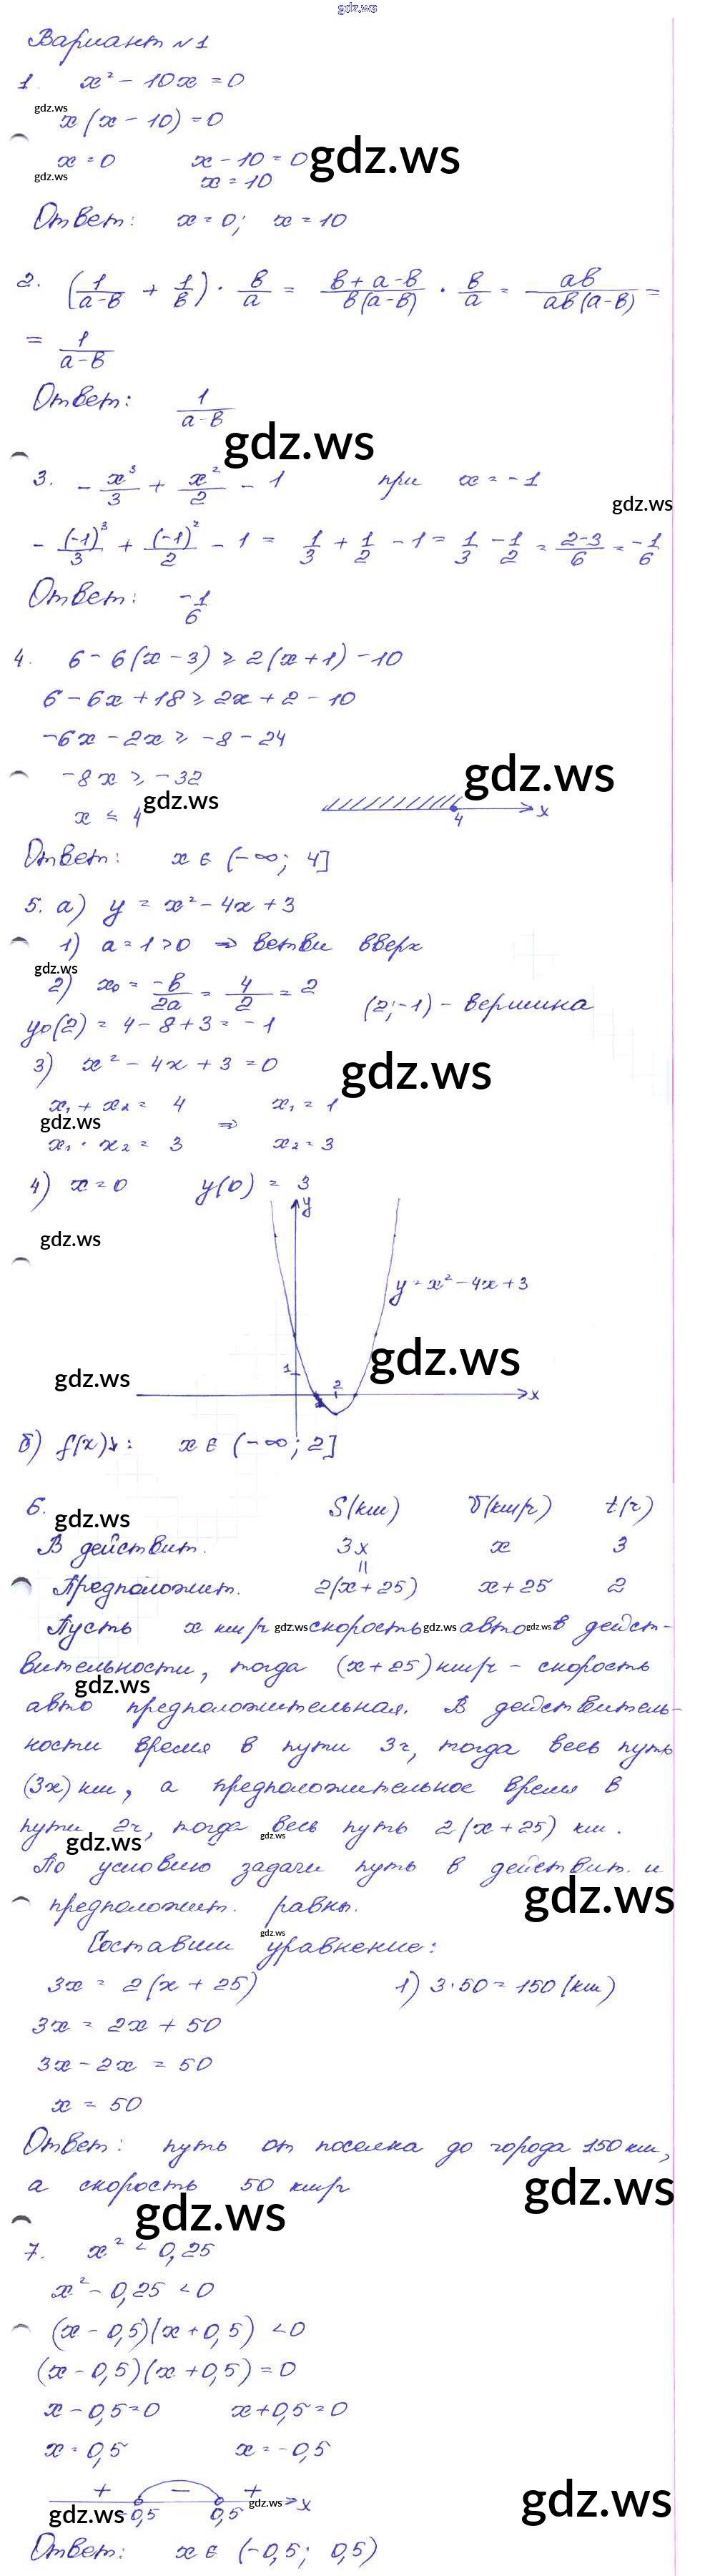 gdz.ws
Вариант №1
1. x² - 10x = 0
gdz.ws
x(x - 10) = 0
x = 0 x - 10 = 0 gdz.ws
gdz.ws x = 10
Ответ: x = 0; x = 10
2. (1/(a-в) + 1/в) · в/a = (в+a-в)/(в(a-в)) · в/a = aв/(aв(a-в)) =
= 1/(a-в)
Ответ: 1/(a-в)
gdz.ws
3. - x³/3 + x²/2 - 1 при x = -1
gdz.ws
- (-1)³/3 + (-1)²/2 - 1 = 1/3 + 1/2 - 1 = 1/3 - 1/2 = (2-3)/6 = -1/6
Ответ: -1/6
4. 6 - 6(x - 3) ≥ 2(x+1) - 10
6 - 6x + 18 ≥ 2x + 2 - 10
-6x - 2x ≥ -8 - 24
-8x ≥ -32 gdz.ws
x ≤ 4 gdz.ws 4 x
Ответ: x ∈ (-∞; 4]
5. а) y = x² - 4x + 3
1) a = 1 > 0 ⇒ ветви вверх
gdz.ws
2) x₀ = -в/2a = 4/2 = 2
(2; -1) - вершина
y₀(2) = 4 - 8 + 3 = -1
3) x² - 4x + 3 = 0 gdz.ws
x₁ + x₂ = 4 x₁ = 1
gdz.ws ⇒
x₁ · x₂ = 3 x₂ = 3
4) x = 0 y(0) = 3
y
gdz.ws
y = x² - 4x + 3
gdz.ws
1 2
gdz.ws x
б) f(x)↓: x ∈ (-∞; 2]
6. gdz.ws S(км) V(км/ч) t(ч)
В действит. 3x x 3
=
Предположит. 2(x+25) x+25 2
Пусть x км/ч gdz.ws скорость gdz.ws авто gdz.ws в дейст-
вительности, тогда (x+25) км/ч - скорость
gdz.ws
авто предположительная. В действитель-
ности время в пути 3ч, тогда весь путь
(3x) км, а предположительное время в
пути 2ч, тогда весь путь 2(x+25) км.
gdz.ws gdz.ws
По условию задачи путь в действит. и
предположит. равны. gdz.ws
gdz.ws
Составим уравнение:
3x = 2(x + 25) 1) 3·50 = 150 (км)
3x = 2x + 50
3x - 2x = 50
x = 50
Ответ: путь от поселка до города 150 км,
а скорость 50 км/ч gdz.ws
gdz.ws
7. x² < 0,25
x² - 0,25 < 0
(x - 0,5)(x + 0,5) < 0
(x - 0,5)(x + 0,5) = 0
x - 0,5 = 0 x + 0,5 = 0
x = 0,5 x = -0,5
+ - +
gdz.ws -0,5 0,5 gdz.ws x gdz.ws
Ответ: x ∈ (-0,5; 0,5)